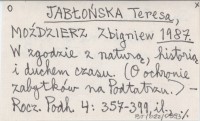 JABŁOŃSKA Teresa,
MOŹDZIERZ Zbigniew 1987.
W zgodzie z naturą, historią
i duchem czasu. (O ochronie
zabytków na Podtatrzu.) –
Rocz. Podh. 4: 357-399, il.